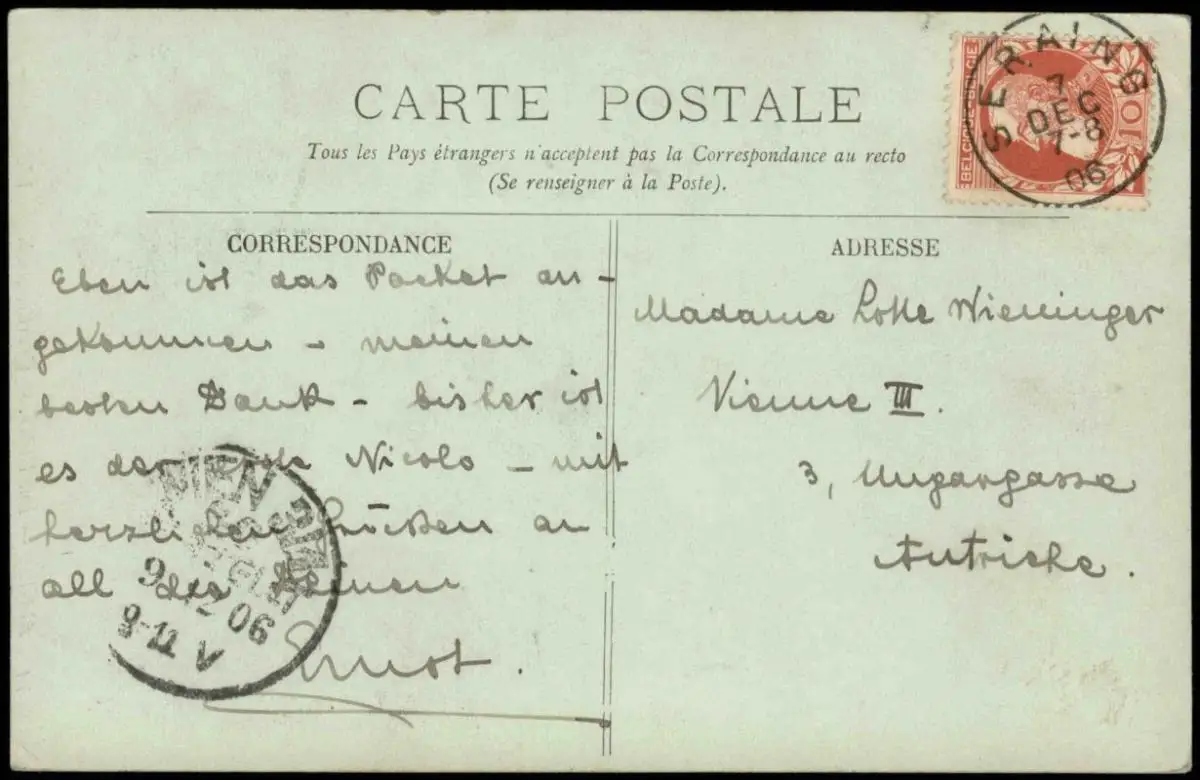 CARTE POSTALE
Tous les Pays étrangers n'acceptent pas la Correspondance au recto
(Se renseigner à la Poste).
BELGIQUE-BELGIË
10
SERAING
7
DEC
7-8
06
CORRESPONDANCE
Eben ist das Packet an-
gekommen - meinen
besten Dank - bisher ist
es der Nicolo - mit
herzlichen Grüßen an
all die Deinen
Ernst.
WIEN 3/1
9 12 06
9-11 V
ADRESSE
Madame Lotte Wieninger
Vienne III.
3, Ungargasse
Autriche.